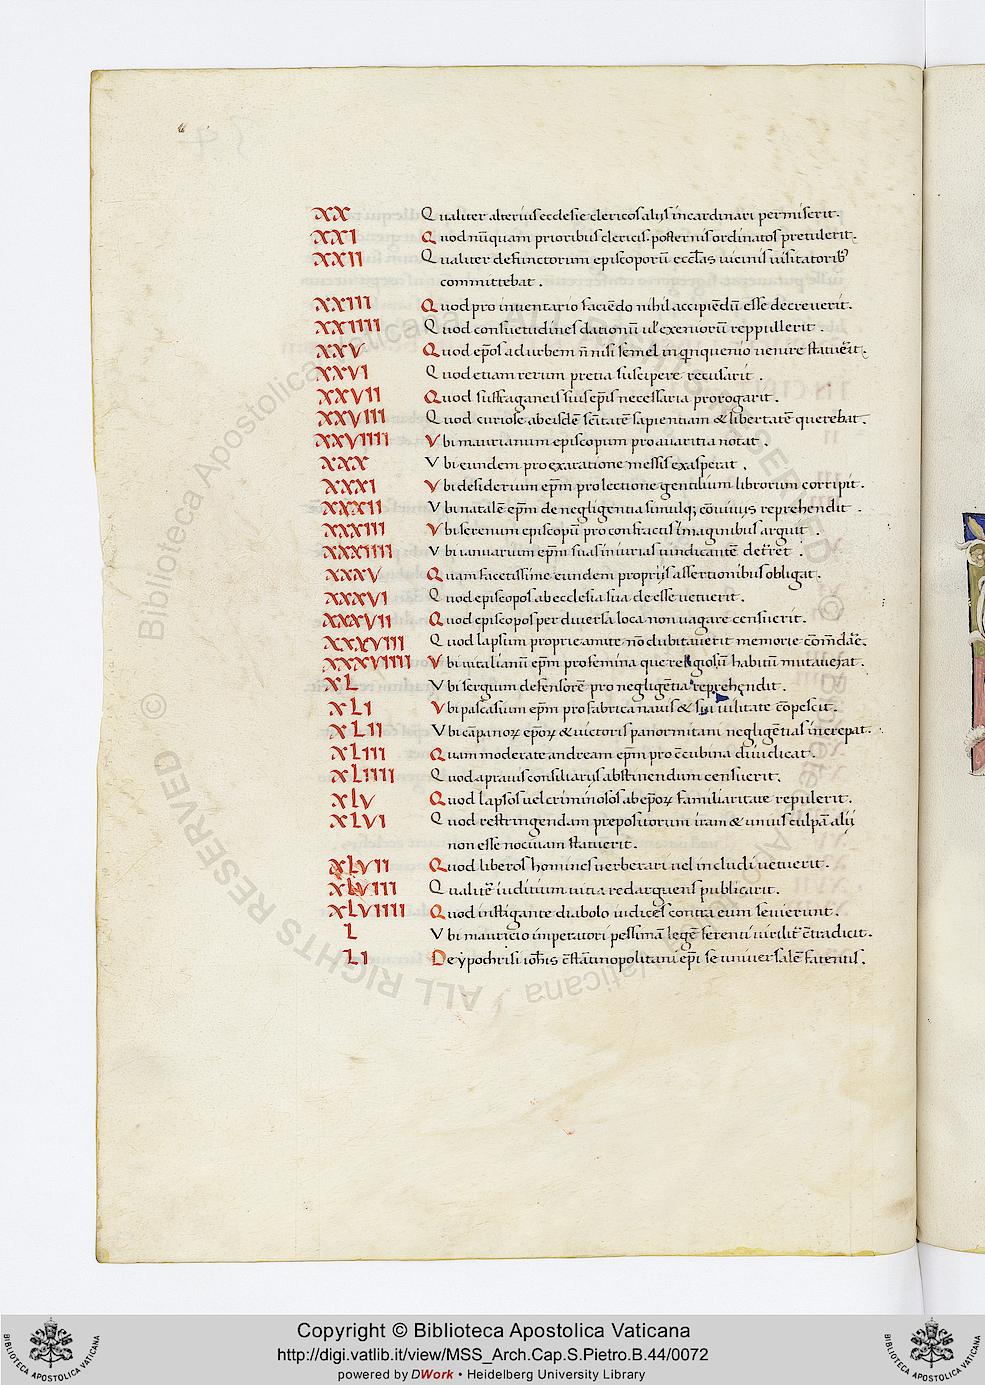 XX Qualiter alterius ecclesie clericos aliis incardinari permiserit.
XXI Quod nūquam prioribus clericis posternis ordinatos pretulerit.
XXII Qualiter defunctorum episcoporū eccl̄as uicinis uisitatorib;
committebat.
XXIII Quod pro inuentario faciēdo nihil accipiēdū esse decreuerit.
XXIIII Quod consuetudines dationū ul̄ exeniorū reppullerit.
XXV Quod ep̄os ad urbem n̄ nisi semel in qnquenio uenire statuerit.
XXVI Quod etiam rerum pretia suscipere recusarit.
XXVII Quod suffraganeis suis ep̄is necessaria prorogarit.
XXVIII Quod curiose ab eisdē sc̄itatē sapientiam & libertatē querebat.
XXVIIII Vbi maurianum episcopum pro auaritia notat.
XXX Vbi eundem pro exaratione messis exasperat.
XXXI Vbi desiderium ep̄m pro lectione gentilium librorum corripit.
XXXII Vbi natalē ep̄m de negligentia simulq; cōuiuiis reprehendit.
XXXIII Vbi serenum episcopū pro confractis imaginibus arguit.
XXXIIII Vbi ianuarium ep̄m suas iniurias uindicantē deterret.
XXXV Quam facetissime eundem propriis assertionibus obligat.
XXXVI Quod episcopos ab ecclesia sua deesse uetuerit.
XXXVII Quod episcopos per diuersa loca non uagare censuerit.
XXXVIII Quod lapsum proprie amite nō dubitauerit memorie cōmdāē.
XXXVIIII Vbi uitalianū ep̄m pro femina que religiosū habitū mutauerat.
XL Vbi sergium defensorē pro negligētia reprehendit.
XLI Vbi pascasium ep̄m pro fabrica nauis & sui uilitate cōpescit.
XLII Vbi cāpanoꝝ ep̄oꝝ & uictoris panormitani negligētias increpat.
XLIII Quam moderate andream ep̄m pro cc̄ubina diiudicat.
XLIIII Quod a prauis consiliariis abstinendum censuerit.
XLV Quod lapsos uel criminosos ab ep̄oꝝ familiaritate repulerit.
XLVI Quod restringendam prepositorum iram & unius culpā alii
non esse nociuam statuerit.
XLVII Quod liberos homines uerberari uel includi uetuerit.
XLVIII Qualitē iuditium uitia redarguens publicarit.
XLVIIII Quod instigante diabolo iudices contra eum seuierunt.
L Vbi mauricio imperatori pessimā legē ferenti uirilit̄ c̄tradicit.
LI De ypochrisi ioh̄is c̄stātinopolitani ep̄i se uniuersalē fatentis.
Copyright © Biblioteca Apostolica Vaticana
http://digi.vatlib.it/view/MSS_Arch.Cap.S.Pietro.B.44/0072
powered by DWork • Heidelberg University Library